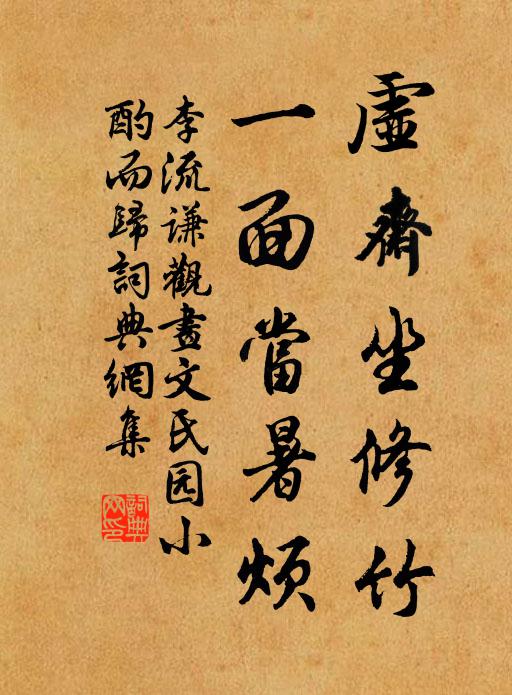 虛齋坐修竹
一面當暑煩
李流谦觀畫文氏园小
酌而歸詞典網集
詞典
网印